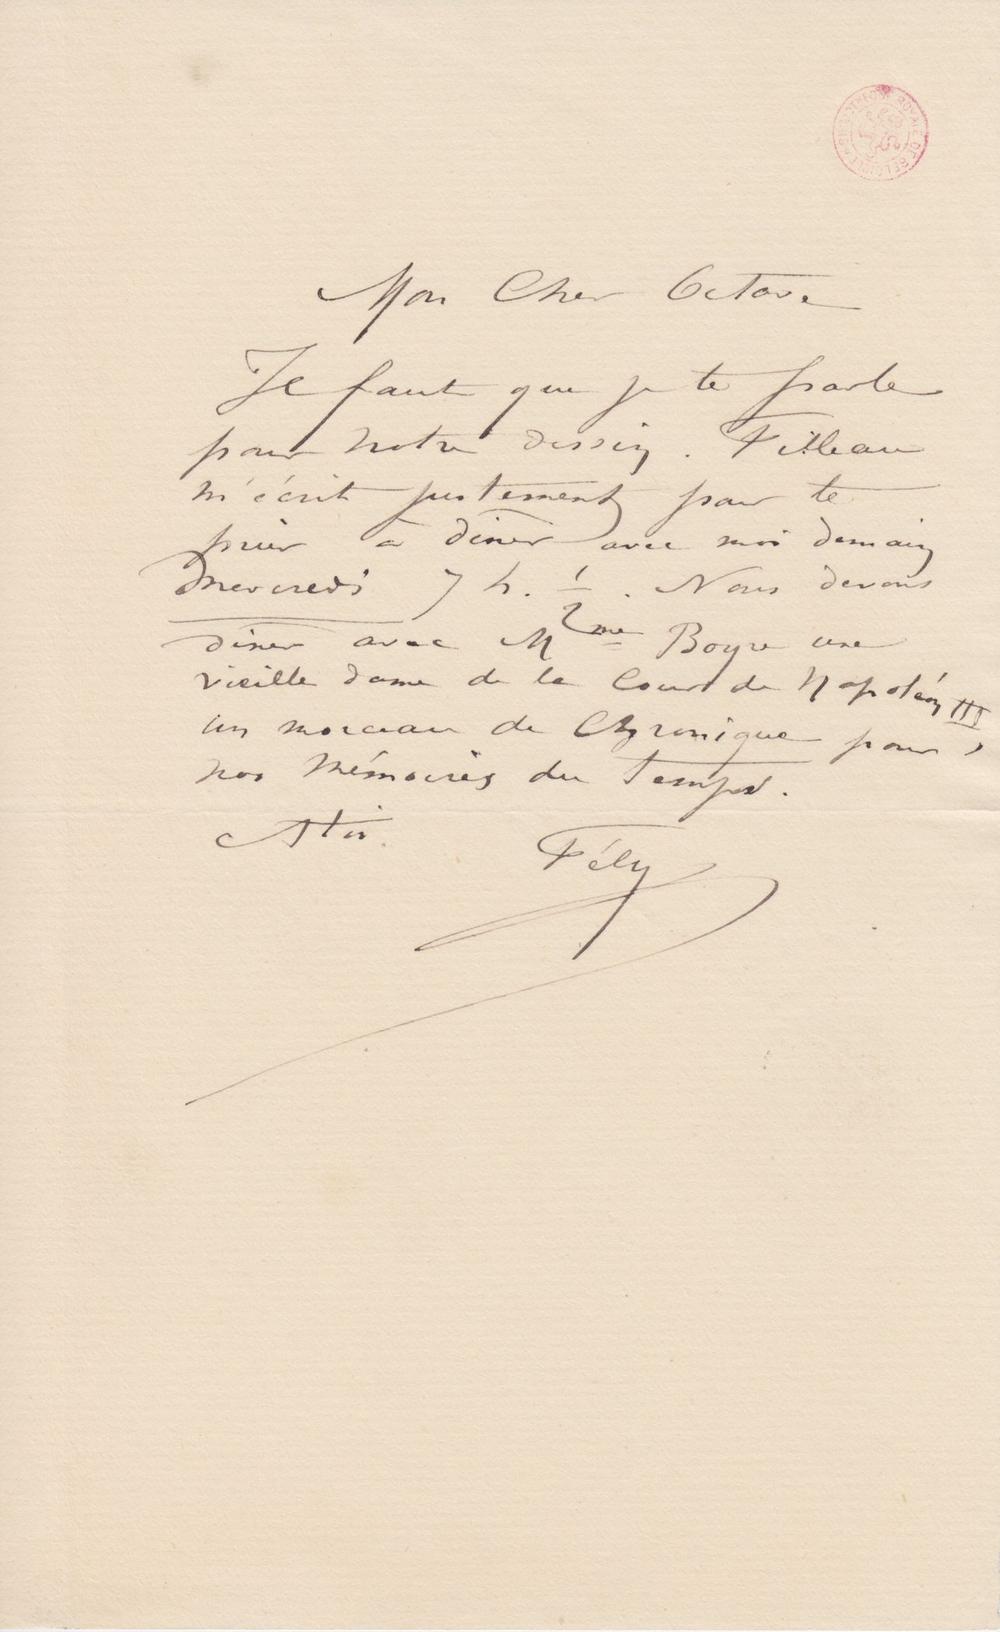 BIBLIOTHÈQUE ROYALE DE BELGIQUE
Mon Cher Octave
Il faut que je te parle
pour notre dessin. Filleau
m'écrit justement pour te
prier à diner avec moi demain
Mercredi 7 h. 1/2. Nous devons
diner avec Mme Boyre une
vieille dame de la Cour de Napoléon III,
un morceau de Chronique pour
nos Mémoires du Temps.
A toi.
Fély